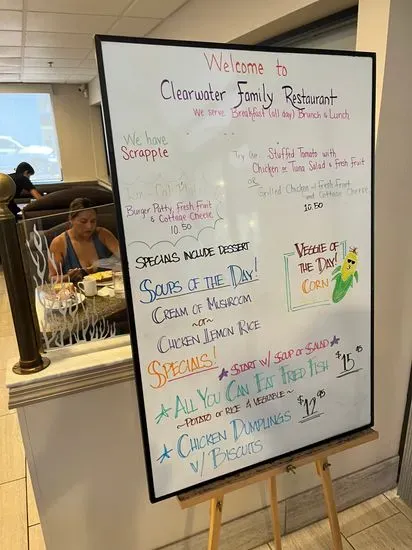 Welcome to
Clearwater Family Restaurant
We serve Breakfast (all day) Brunch & Lunch
We have
Scrapple
Try the Stuffed Tomato with
Chicken or Tuna Salad & Fresh Fruit
or
Grilled Chicken Fresh Fruit
and Cottage Cheese
10.50
Burger Patty, Fresh Fruit
& Cottage Cheese
10.50
Specials include Dessert
Soups of the Day!
Cream of Mushroom
~or~
Chicken Lemon Rice
Veggie of
the Day!
Corn
Specials!
Start w/ Soup or Salad
All You Can Eat Fried Fish $15.95
~Potato or Rice & Vegetable~
Chicken Dumplings $12.95
w/ Biscuits